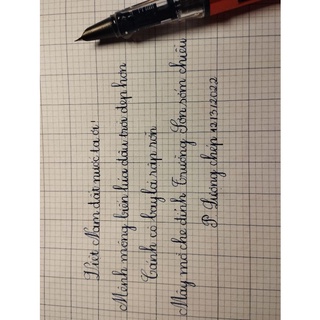 Việt Nam đất nước ta ơi!
Mênh mông biển lúa đâu trời đẹp hơn
Cánh cò bay lả rập rờn
Mây mờ che đỉnh Trường Sơn sớm chiều
P Lương chép 12/3/2022